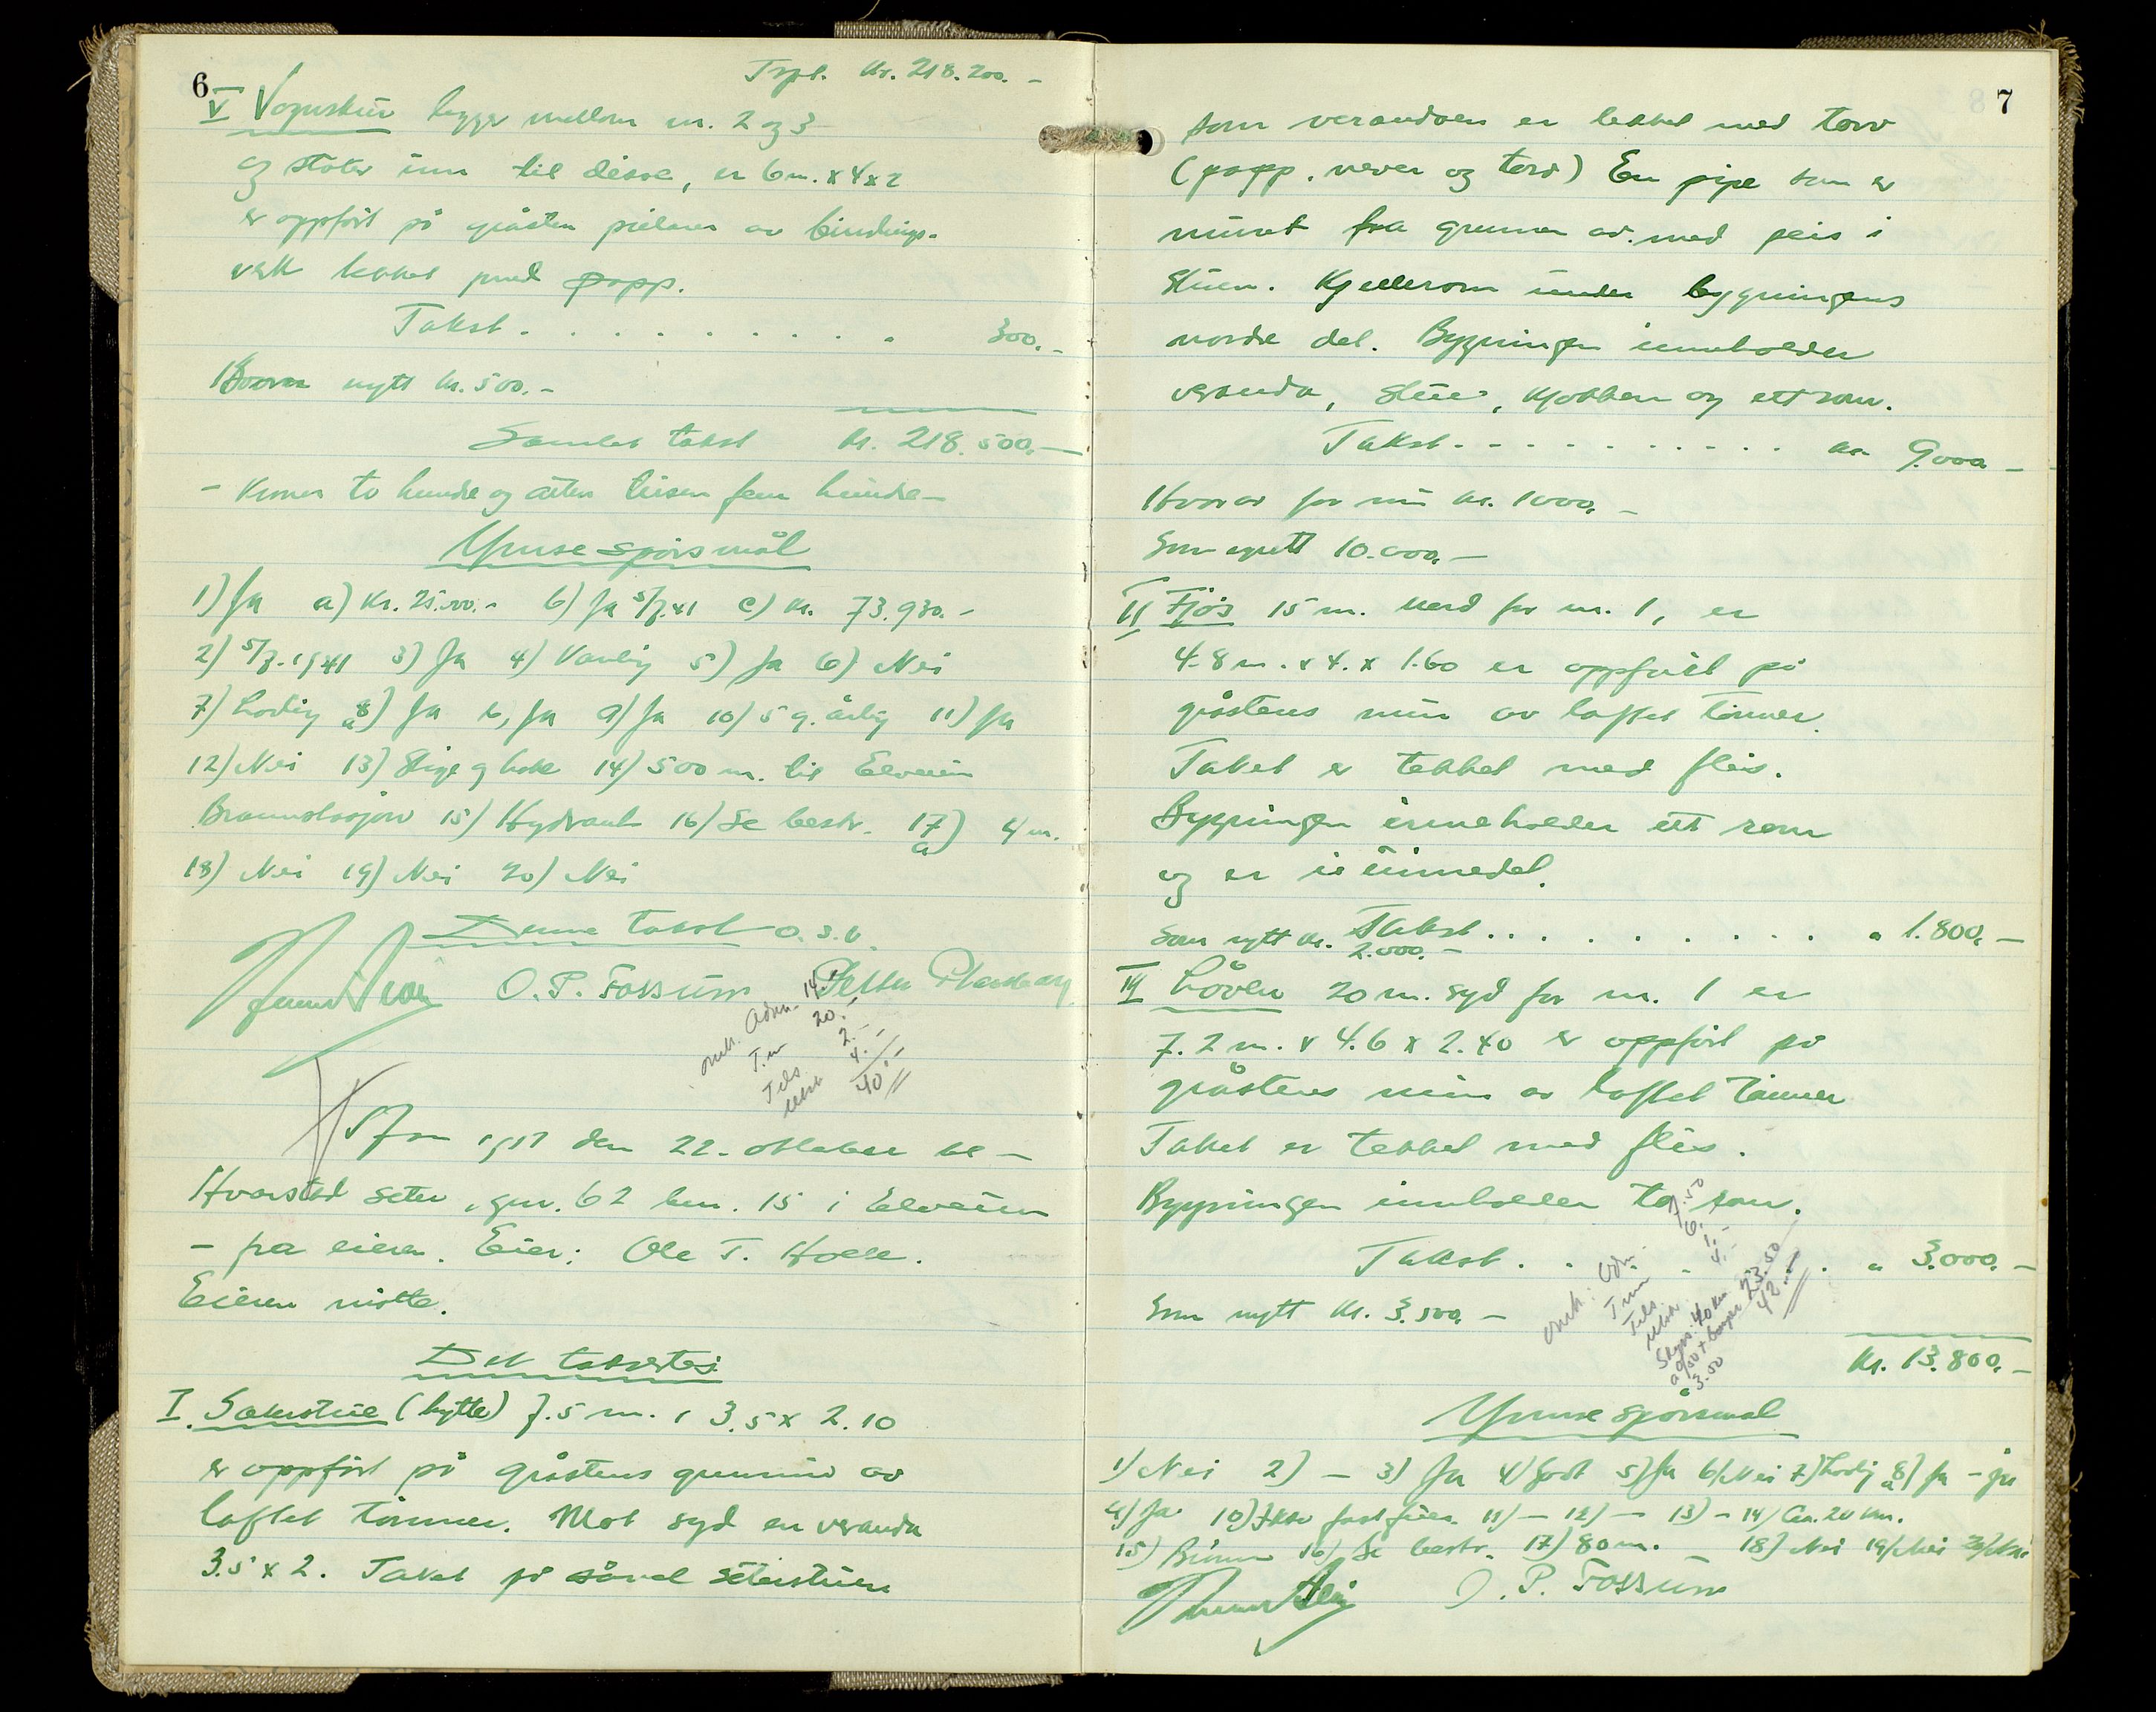 6
Trpt. Kr. 218.200.-
V Vognskur ligger mellom nr. 2 og 3
og støter inn til disse, er 6 m. x 4 x 2
er oppført på gråsten pielarer av bindings-
verk tekket med papp.
Takst . . . . . . . . . . 300.-
Hvorav nytt kr. 500.-
Samlet takst Kr. 218.500.-
- Kroner to hundre og atten tusen fem hundre -
Ymse spørsmål
1) Ja a) Kr. 25.000.- b) Ja 5/7.41 c) Kr. 73.930.-
2) 5/7.1941 3) Ja 4) Vanlig 5) Ja 6) Nei
7) Lovlig 8) a Ja b, Ja 9) Ja 10) 5 g. årlig 11) Ja
12) Nei 13) Stige og hake 14) 500 m. til Elverum
Brannstasjon 15) Hydrant 16) Se beskr. 17) a 4 m.
18) Nei 19) Nei 20) Nei
Denne takst o.s.v.
O. P. Fossum Petter
omk. Adm. 14.-
T.m 20.-
Tils 2.-
Utsk 4.-
40.-
den 22. oktober
Hvarstad seter, gnr. 62 bnr. 15 i Elverum
- fra eieren. Eier: Ole T. Holle.
Eieren møtte.
Det takseres:
I. Seterstue (hytte) 7.5 m. x 3.5 x 2.10
er oppført på gråstens grunmur av
laftet tømmer. Mot syd en veranda
3.5 x 2. Taket på såvel seterstuen
7
som verandaen er tekket med torv
(papp, never og torv) En pipe som er
muret fra grunnen av. med peis i
stuen. Kjellerom under bygningens
nordre del. Bygningen inneholder
veranda, stue, kjøkken og ett rom.
Takst . . . . . . . . . . kr. 9.000.-
Hvorav for mur kr. 1000.-
Som nytt 10.000.-
II Fjøs 15 m. nord for nr. 1, er
4.8 m. x 4. x 1.60 er oppført på
gråstens mur av laftet tømmer.
Taket er tekket med flis.
Bygningen inneholder ett rom
og er uinnredet.
Som nytt kr. 2.000.- Takst . . . . . . . . . " 1.800.-
III Låven 20 m. syd for nr. 1 er
7.2 m. x 4.6 x 2.40 er oppført på
gråstens mur av laftet tømmer
Taket er tekket med flis.
Bygningen innholder to rom.
Takst . . . . . . " 3.000.-
Som nytt kr. 3.500.-
omk: Adm. 7.50
T.m 6.-
Tils 1.-
Utsk. 4.-
Skyss. 40 km
23.50
3.50
42.-
Kr. 13.800.-
Ymse spørsmål
1) Nei 2) - 3) Ja 4) Godt 5) Ja 6) Nei 7) Lovlig 8) a Ja - Ja
9) Ja 10) Ikke fast feier. 11) - 12) - 13) - 14) Ca. 20 km.
15) Brønn 16) Se beskr. 17) 80 m. 18) Nei 19) Nei 20) Nei
O. P. Fossum